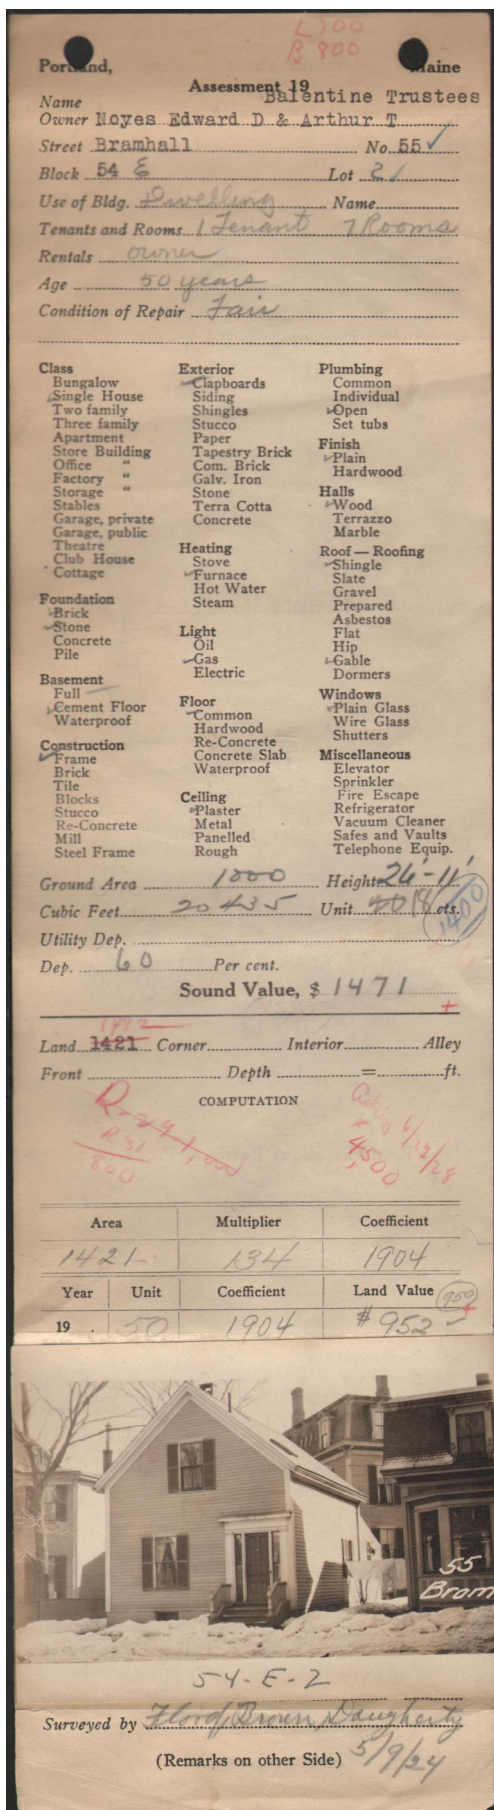 L 700
B 800
Portland, Maine
Assessment 19
Name Balentine Trustees
Owner Noyes Edward D & Arthur T
Street Bramhall No. 55 ✓
Block 54 E Lot 2 ✓
Use of Bldg. Dwelling Name
Tenants and Rooms 1 Tenant 7 Rooms
Rentals owner
Age 50 years
Condition of Repair Fair
Class
Bungalow
Single House
Two family
Three family
Apartment
Store Building
Office "
Factory "
Storage "
Stables
Garage, private
Garage, public
Theatre
Club House
Cottage
Foundation
Brick
Stone
Concrete
Pile
Basement
Full
Cement Floor
Waterproof
Construction
Frame
Brick
Tile
Blocks
Stucco
Re-Concrete
Mill
Steel Frame
Exterior
Clapboards
Siding
Shingles
Stucco
Paper
Tapestry Brick
Com. Brick
Galv. Iron
Stone
Terra Cotta
Concrete
Heating
Stove
Furnace
Hot Water
Steam
Light
Oil
Gas
Electric
Floor
Common
Hardwood
Re-Concrete
Concrete Slab
Waterproof
Ceiling
Plaster
Metal
Panelled
Rough
Plumbing
Common
Individual
Open
Set tubs
Finish
Plain
Hardwood
Halls
Wood
Terrazzo
Marble
Roof — Roofing
Shingle
Slate
Gravel
Prepared
Asbestos
Flat
Hip
Gable
Dormers
Windows
Plain Glass
Wire Glass
Shutters
Miscellaneous
Elevator
Sprinkler
Fire Escape
Refrigerator
Vacuum Cleaner
Safes and Vaults
Telephone Equip.
Ground Area 1000 Height
Cubic Feet 20435 Unit 18 cts.
1400
Utility Dep.
Dep. 60 Per cent.
Sound Value, $ 1471
Land 1421 Corner Interior Alley
Front Depth = ft.
COMPUTATION
R-29 1,000
R 31
800
6/12/28
4500
Area Multiplier Coefficient
1421 134 1904
Year Unit Coefficient Land Value 950
19 50 1904 $ 952
55
Bram
54-E-2
Surveyed by Flood, Brown, Daugherty
(Remarks on other Side) 5/9/24